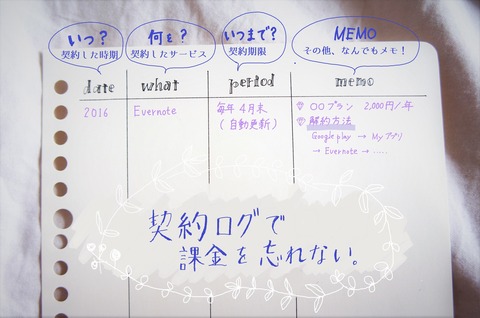 いつ?
契約した時期
何を?
契約したサービス
いつまで?
契約期限
MEMO
その他、なんでもメモ!
date what period memo
2016
Evernote
毎年4月末
(自動更新)
○○プラン 2,000円/年
解約方法
Google play → Myアプリ
→ Evernote → .....
契約ログで
課金を忘れない。